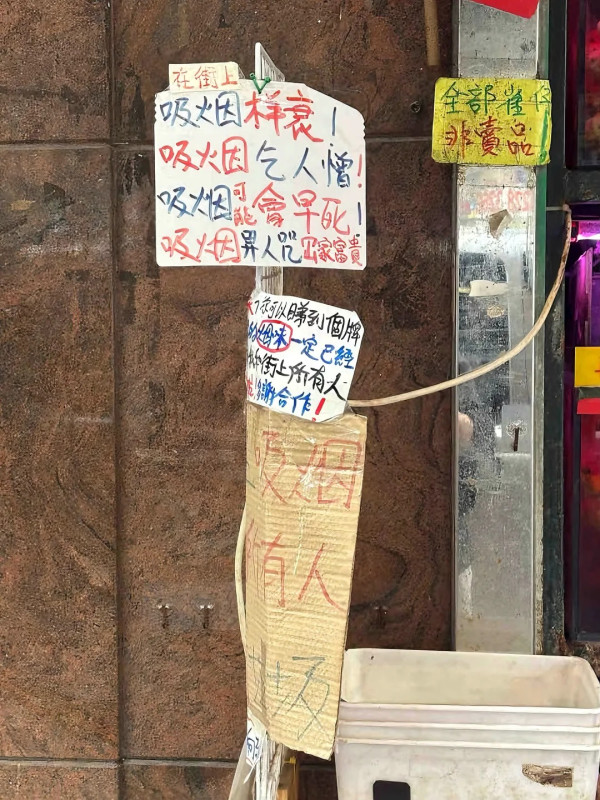 在街上
吸烟样衰!
吸烟乞人憎!
吸烟可能會早死!
吸烟畀人咒冚家富貴
你可以睇到個牌
烟味一定已經
街上所有人
多謝合作!
吸烟
所有人
垃圾
全部雀
非賣品